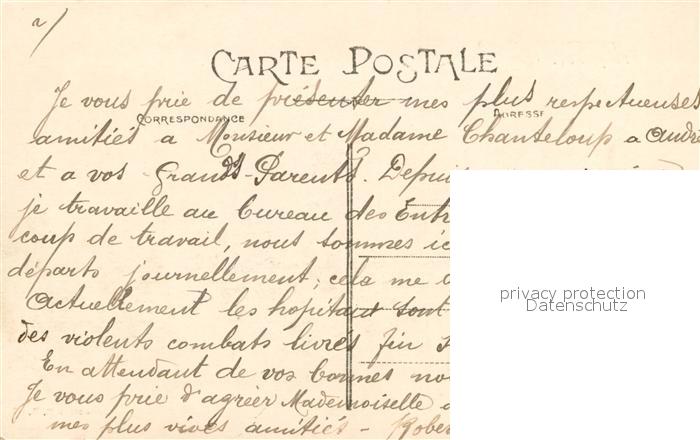 2/
CARTE POSTALE
Je vous prie de présenter mes plus respectueuses
CORRESPONDANCE ADRESSE
amitiés a Monsieur et Madame Chanteloup a André
et a vos Grands-Parents. Depui
je travaille au bureau des Entr
coup de travail, nous sommes ic
départs journellement, cela me
Actuellement les hopitaux sont
des violents combats livrés fin
En attendant de vos bonnes no
Je vous prie d'agréer Mademoiselle
mes plus vives amitiés - Rober
privacy protection
Datenschutz